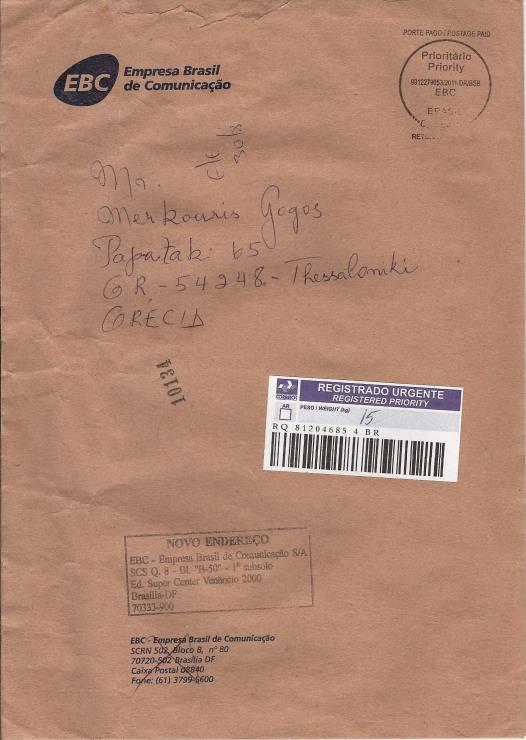 PORTE PAGO / POSTAGE PAID
Prioritário
Priority
9912279053/2011-DR/BSB
EBC
BRASIL
EBC
Empresa Brasil
de Comunicação
Mr.
Merkouris Gogos
Papataki 65
GR-54248-Thessaloniki
GRÉCIA
10134
CORREIOS
REGISTRADO URGENTE
REGISTERED PRIORITY
AR
PESO / WEIGHT (kg)
15
RQ 81204685 4 BR
NOVO ENDEREÇO
EBC - Empresa Brasil de Comunicação S/A
SCS Q. 8 - Bl. "B-50" - 1º subsolo
Ed. Super Center Venâncio 2000
Brasília-DF
70333-900
EBC - Empresa Brasil de Comunicação
SCRN 502, Bloco B, nº 80
70720-502 Brasília DF
Caixa Postal 08840
Fone: (61) 3799-5600